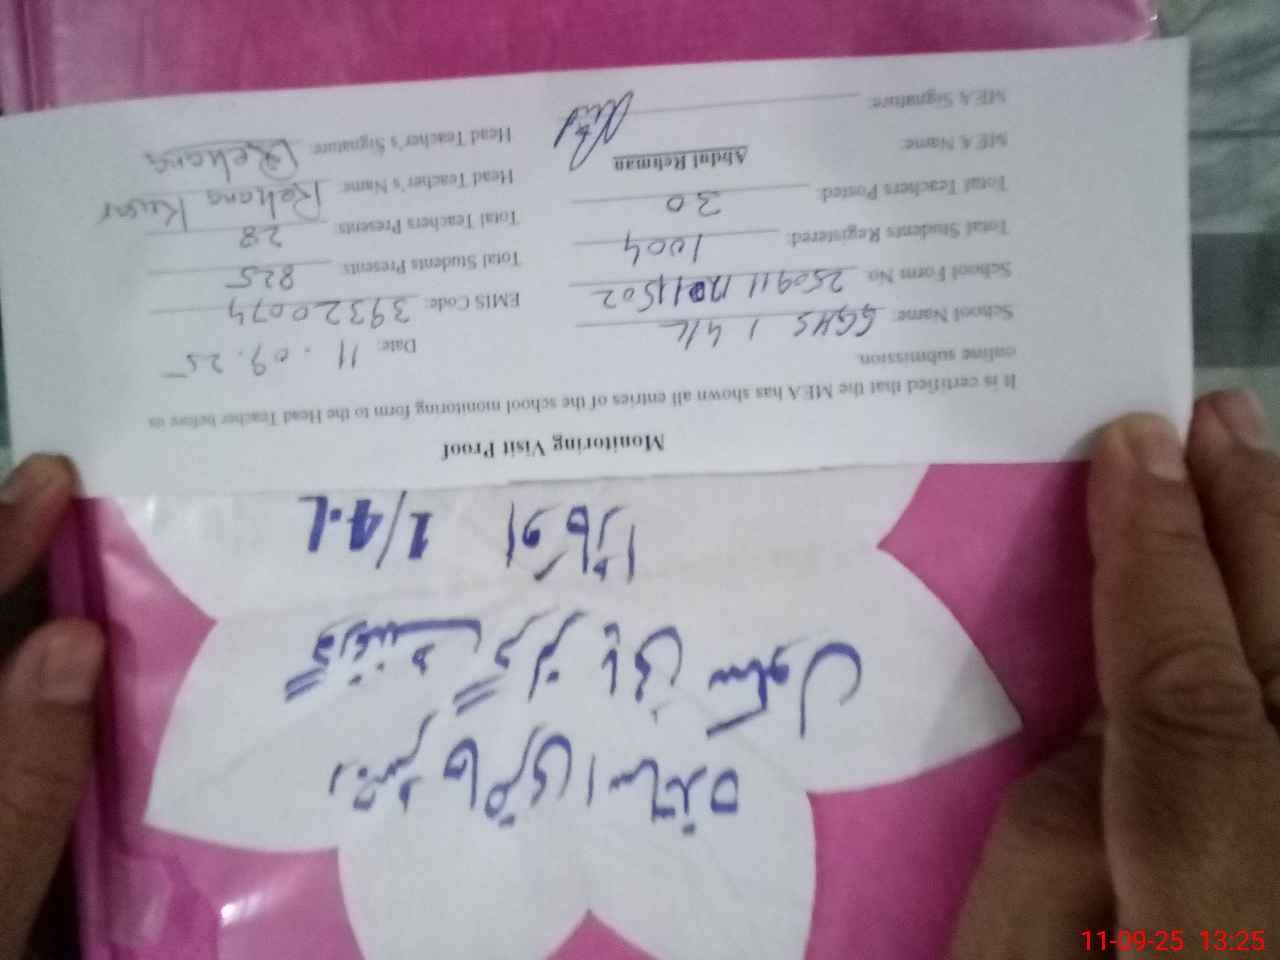 رجسٹر حاضری اساتذہ
سکول گورنمنٹ گرلز ہائی سکول
1/4.L اوکاڑہ
Monitoring Visit Proof
It is certified that the MEA has shown all entries of the school monitoring form to the Head Teacher before its
online submission.
Date: 11.09.25
School Name: GGHS 1 4/L EMIS Code: 39320074
School Form No: Total Students Presents: 825
Total Students Registered: 1004 Total Teachers Presents: 28
Total Teachers Posted: 30 Head Teacher's Name: Rehana Kusar
MEA Name: Abdul Rehman Head Teacher's Signature: Rehana
MEA Signature:
11-09-25 13:25